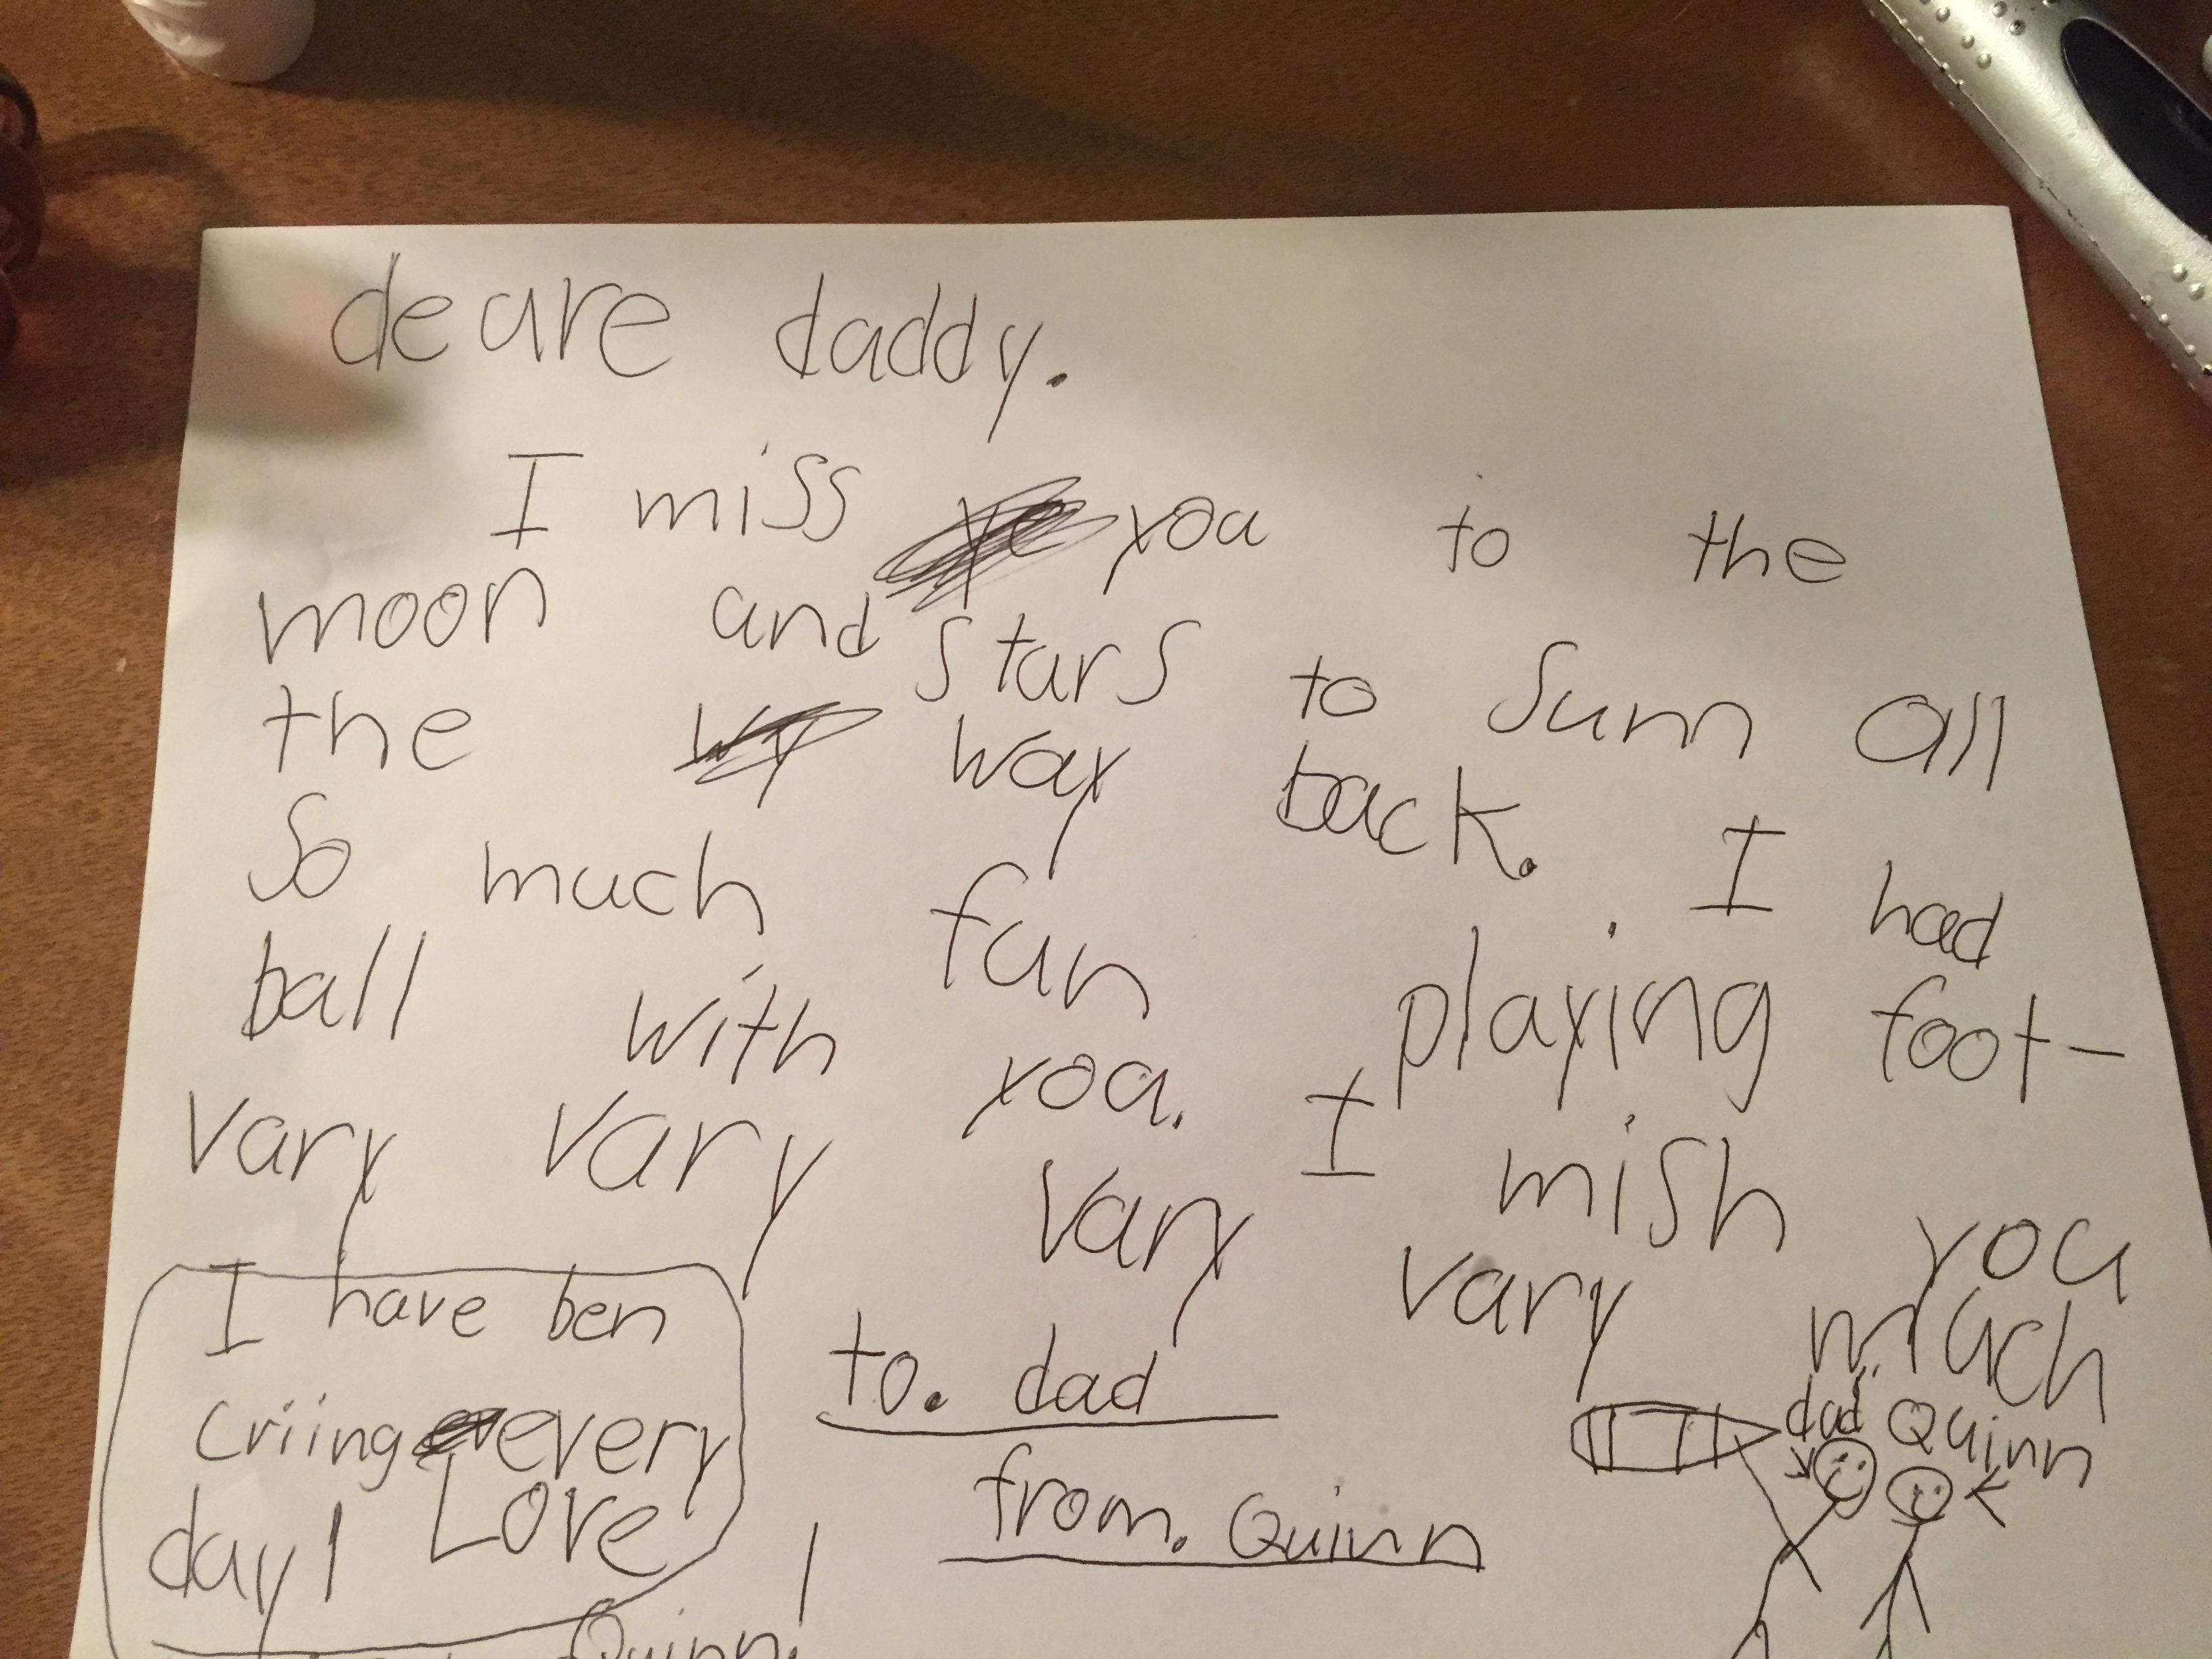 deare daddy.
I miss you to the
moon and stars to sum all
the way back. I had
so much fun playing foot-
ball with you. I mish you
vary vary vary vary much
I have ben
criing every
day! Love
Quinn!
to. dad
from. Quinn
dad Quinn